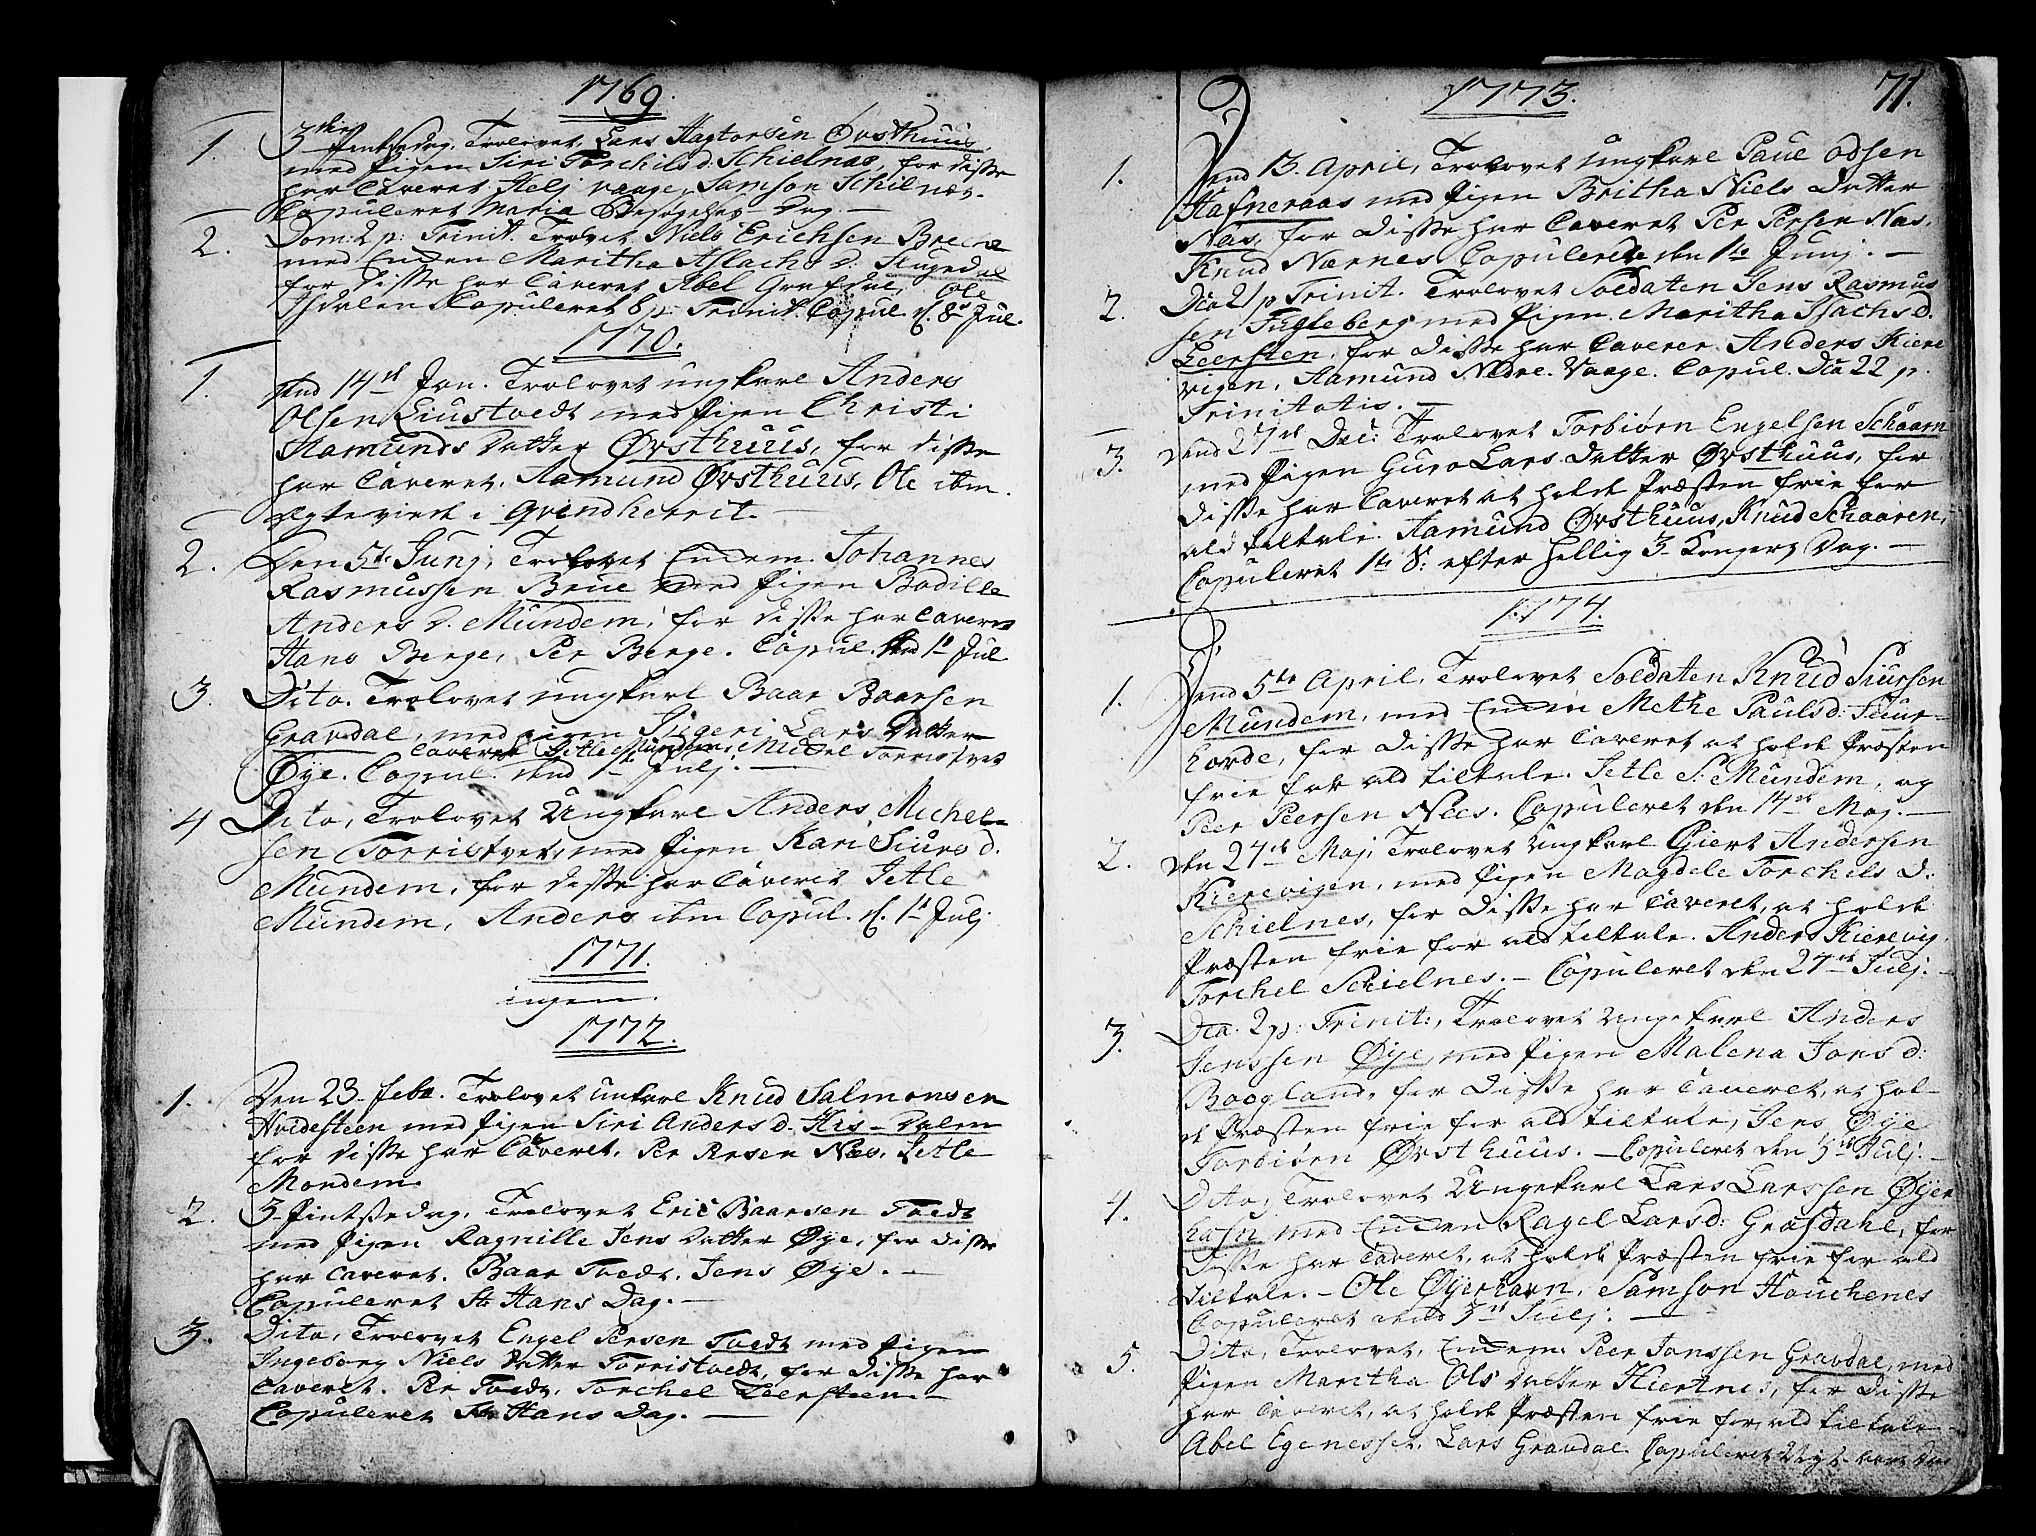 1769.
1. 3die Pintsedag, Trolovet Lars Hagtorsen Øvsthuus
med Pigen Siri Torchils d. Schielnæs, for disse
har Caveret Helj Vaage, Samson Schilnæs.
Copuleret Maria Besøgelses Dag. —
2. Dom: 2 p: Trinit. Trolovet Niels Erichsen
med Enken Maritha Aslachs d.
for disse har Caveret Abel Grafdal, Ole
Copuleret 8 p. Trinit. Copul. d. 8de Jul.
1770.
1. dend 14de Jan. Trolovet ungkarl Anders
Olsen Liustvedt med Pigen Christi
Aamunds Datter Øvsthuus, for disse
har Caveret, Aamund Øvsthuus, Ole ibm.
Egteviet i Qvindherrit. —
2. Den 5te Junj, Trolovet Enkem. Johannes
Rasmussen Brue med Pigen Bodille
Anders d. Mundem, for disse har Caveret
Hans Berge, Per Berge. Copul. dend 1te Jul.
3. Dito. Trolovet ungkarl Baar Baarsen
Gravdal, med pigen Sigeri Lars Datter
Caveret Jetle Mundem, Michel Torristvet
Øye. Copul. dend 1te Julj. —
4 Dito, Trolovet Ungkarl Anders Michel-
sen Torristvet, med Pigen Kari Siurs d.
Mundem, for disse har Caveret Jetle
Mundem, Anders ibm Copul. d. 1te Julj
1771.
ingen.
1772.
1. Den 23 Febr. Trolovet unkarl Knud Salmonsen
Hvidesteen med Pigen Siri Anders d. His-Dalen
for disse har Caveret, Per Persen Næs, Jetle
Mondem.
2. 3 Pintsedag, Trolovet Eric Baarsen Tvedt
med Pigen Ragnille Jens Datter Øye, for disse
har Caveret. Baar Tvedt, Jens Øye. —
Copuleret St Hans Dag. —
3. Dito, Trolovet Engel Persen Tvedt med Pigen
Ingeborg Niels Datter Torristvedt, for disse har
Caveret. Per Tvedt, Torchel Leersteen —
Copuleret St Hans Dag. —
1773. 71.
1. Dend 13. April, Trolovet ungkarl Paul Odsen
Hafneraas med Pigen Britha Niels Datter
Næs, for disse har Caveret Per Persen Næs,
Knud Nærnes Copuleret den 1te Junj. —
2. Dca 21 p Trinit. Trolovet Soldaten Jens Rasmus
sen Fugleberg med Pigen Maritha Isachs d.
Leersten, for disse har Caveret Anders Kiere
vigen, Aamund Nedre Vaage. Copul. Dca 22 p.
Trinitatis. —
3. dend 27de Dec: Trolovet Torbiørn Engelsen Schaarn
med Pigen Guro Lars Datter Øvsthuus, for
disse har Caveret at holde Præsten frie for
ald tiltale. Aamund Øvsthuus, Knud Schaaren,
Copuleret 1te S: efter Hellig 3 Kongers Dag. —
1774.
1. Dend 5te April, Trolovet Soldaten Knud Siursen
Mundem, med Enken Methe Pauls d:
for disse har Caveret at holde Præsten
frie for ald tiltale. Jetle S: Mundem, og
Peer Peersen Nees. Copuleret den 14de Maj. —
2. den 27de Maj, Trolovet ungkarl Giert Andersen
Kierevigen, med Pigen Magdele Torchels d.
Schielnes, for disse har Caveret, at holde
Præsten frie for ald tiltale. Anders Kierevig,
Torchel Schielnes. — Copuleret den 27de Julj. —
3. Dca. 2 p: Trinit:, Trolovet ungekarl Anders
Jenssen Øye, med Pigen Malena Jons d:
Boogland, for disse har Caveret, at hol-
de Præsten frie for ald tiltale, Jens Øye
Torbiørn Øvsthuus. — Copuleret den 3de Julj. —
4. Dito, Trolovet Ungekarl Lars Larssen Øyer
med Enken Ragel Lars d: Grafdahl, for
disse har Caveret, at holde Præsten frie for ald
tiltale. — Ole Øyerhavn, Samson Houchenes
Copuleret dend 3de Julj: —
5 Dito, Trolovet, Enkem. Peer Jonssen Gravdal, med
Pigen Maritha Ols Datter Hiertnes, for disse
har Caveret, at holde Præsten frie for, ald tiltale —
Abel Egenesset, Lars Gravdal. Copuleret